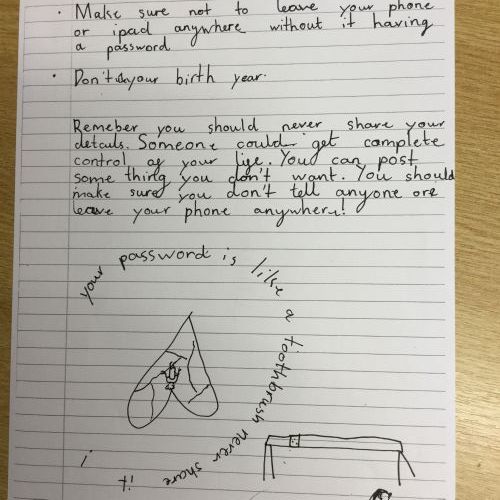 · Make sure not to leave your phone
or ipad anywhere without it having
a password
· Don't your birth year.
Remeber you should never share your
details. Someone could get complete
control of your life. You can post
some thing you don't want. You should
make sure you don't tell anyone ore
leave your phone anywhere!
your password is like a toothbrush never share it !